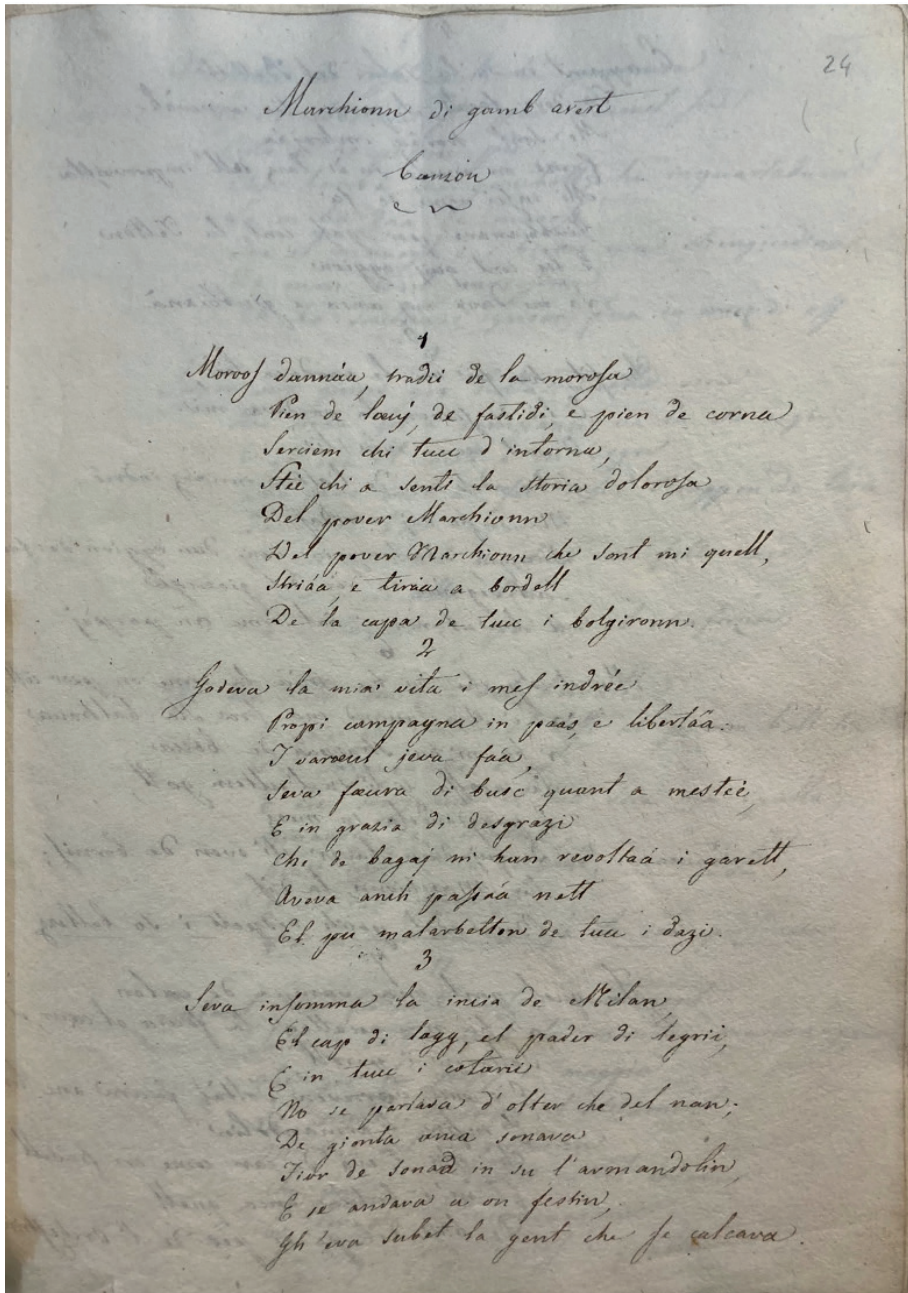 24
Marchionn di gamb avert
Canzon
1
Moroos dannáa, tradii de la morosa
Pien de loeuj, de fastidi, e pien de corna
Serciem chi tucc d'intorna,
Stée chi a senti la storia dolorosa
Del pover Marchionn
Del pover Marchionn che sont mi quell,
Striáa, e tiráa a bordell
De la capa de tucc i bolgironn.
2
Godeva la mia vita i mes indrée
Propi campagna in paas, e libertáa:
I varoeul jeva fáa,
Seva foeura di busc quant a mestée,
E in grazia di desgrazi
Che de bagaj m'han revoltáa i garett,
Aveva anch passáa nett
El pu malarbetton de tucc i dazi.
3
Seva insomma la incia de Milan,
El cap di togg, el pader di legrii,
E in tucc i cotarii
No se parlava d'olter che del nan;
De gionta anca sonava
Fior de sonad in su l'armandolin,
E se andava a on festin,
Gh'eva subet la gent che se calcava.